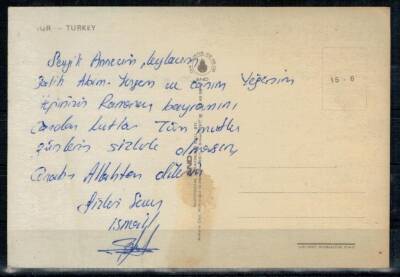 UR - TURKEY
Sevgili Annecim, ablacım
Fatih Abim - Yengem ve canım Yeğenim
hepinizin Ramazan bayramını
Candan kutlar Tüm mutlu
günlerin sizlerle olmasını
Cenabı Allahtan dilerim
Sizleri Seven
ismail
15 - 6